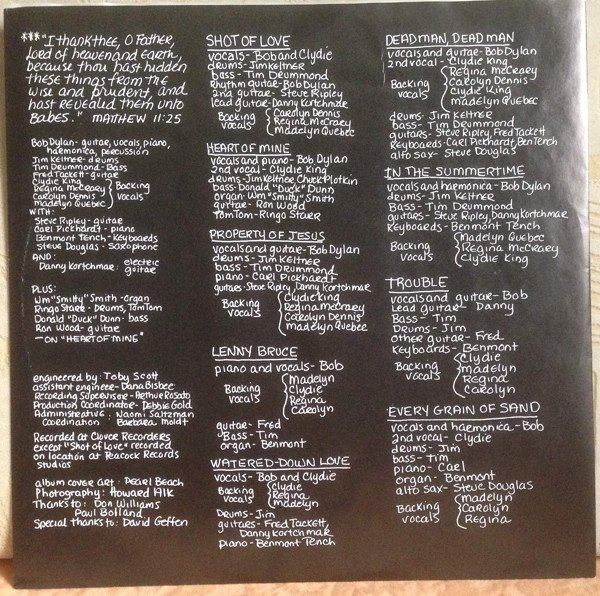 ***"I thank thee, O Father,
Lord of heaven and earth,
because thou hast hidden
these things from the
wise and prudent, and
hast revealed them unto
Babes." MATTHEW 11:25
Bob Dylan - guitar, vocals, piano,
harmonica, percussion
Jim Keltner - drums
Tim Drummond - Bass
Fred Tackett - guitar
Clydie King
Regina McCreary
Carolyn Dennis
Madelyn Quebec
Backing
vocals
WITH:
Steve Ripley - guitar
Carl Pickhardt - piano
Benmont Tench - Keyboards
Steve Douglas - Saxophone
AND:
Danny Kortchmar: electric
guitar
PLUS:
Wm "Smitty" Smith - organ
Ringo Starr - Drums, Tom Tom
Donald "Duck" Dunn - bass
Ron Wood - guitar
— ON "HEART OF MINE"
engineered by: Toby Scott
assistant engineer - Dana Bisbee
Recording Supervisor - Arthur Rosato
Production Coordinator - Debbie Gold
Administrative Coordination - Naomi Saltzman
Barbara Moldt
Recorded at Clover Recorders
except "Shot of Love" recorded
on location at Peacock Records
studios
album cover art: Pearl Beach
Photography: Howard Alk
Thanks to: Don Williams
Paul Bolland
Special thanks to: David Geffen
SHOT OF LOVE
vocals - Bob and Clydie
drums - Jim Keltner
bass - Tim Drummond
Rhythm guitar - Bob Dylan
2nd guitar - Steve Ripley
lead guitar - Danny Kortchmar
Backing
vocals
Carolyn Dennis
Regina McCreary
Madelyn Quebec
HEART OF MINE
vocals and piano - Bob Dylan
2nd vocal - Clydie King
drums - Jim Keltner, Chuck Plotkin
bass - Donald "Duck" Dunn
organ - Wm "Smitty" Smith
guitar - Ron Wood
Tom Tom - Ringo Starr
PROPERTY OF JESUS
vocals and guitar - Bob Dylan
drums - Jim Keltner
bass - Tim Drummond
piano - Carl Pickhardt
guitars - Steve Ripley, Danny Kortchmar
Backing
vocals
Clydie King
Regina McCreary
Carolyn Dennis
Madelyn Quebec
LENNY BRUCE
piano and vocals - Bob
Backing
vocals
Madelyn
Clydie
Regina
Carolyn
guitar - Fred
Bass - Tim
organ - Benmont
WATERED-DOWN LOVE
vocals - Bob and Clydie
Backing
vocals
Clydie
Regina
Madelyn
Drums - Jim
guitars - Fred Tackett,
Danny Kortchmar
piano - Benmont Tench
DEAD MAN, DEAD MAN
vocals and guitar - Bob Dylan
2nd vocal - Clydie King
Backing
vocals
Regina McCreary
Carolyn Dennis
Clydie King
Madelyn Quebec
drums - Jim Keltner
bass - Tim Drummond
guitars - Steve Ripley, Fred Tackett
Keyboards - Carl Pickhardt, Ben Tench
alto sax - Steve Douglas
IN THE SUMMERTIME
vocals and harmonica - Bob Dylan
drums - Jim Keltner
Bass - Tim Drummond
guitars - Steve Ripley, Danny Kortchmar
Keyboards - Benmont Tench
Backing
vocals
Madelyn Quebec
Regina McCreary
Clydie King
TROUBLE
vocals and guitar - Bob
Lead guitar - Danny
Bass - Tim
Drums - Jim
other guitar - Fred
Keyboards - Benmont
Backing
vocals
Clydie
Madelyn
Regina
Carolyn
EVERY GRAIN OF SAND
vocals and harmonica - Bob
2nd vocal - Clydie
drums - Jim
bass - Tim
piano - Carl
organ - Benmont
alto sax - Steve Douglas
Backing
vocals
Madelyn
Carolyn
Regina